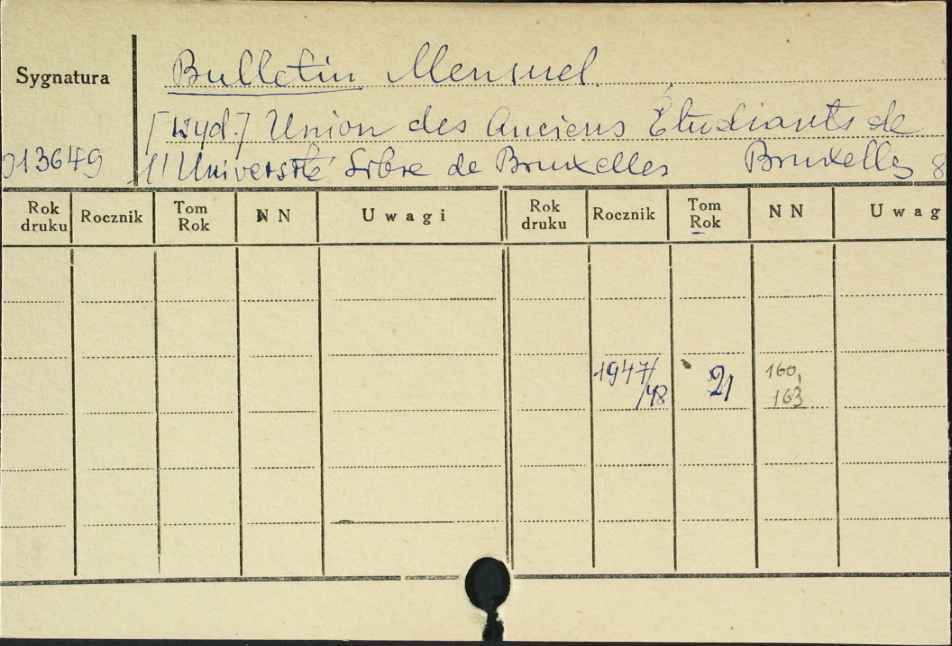 Sygnatura Bulletin Mensuel
[wyd.] Union des Anciens Etudiants de
013649 l'Université Libre de Bruxelles Bruxelles 8
Rok druku Rocznik Tom Rok NN Uwagi Rok druku Rocznik Tom Rok NN Uwag
1947/ 21 160,
/48 163